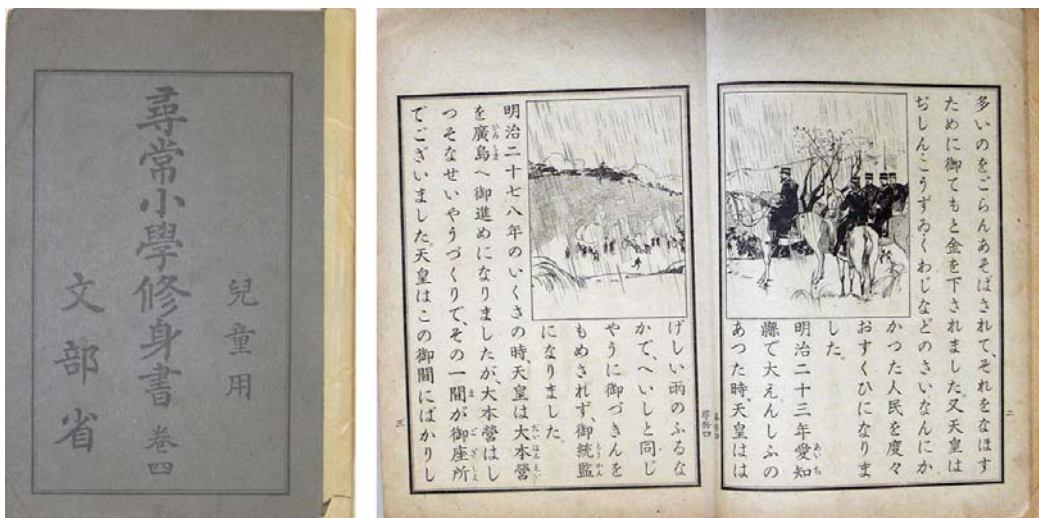 兒童用
尋常小學修身書 卷四
文部省
多いのをごらんあそばされて、それをなほす
ために御てもと金を下されました。又天皇は
ぢしんこうずゐくわじなどのさいなんにか
かつた人民を度々
おすくひになりま
した。
明治二十三年愛知
縣で大えんしふの
あつた時、天皇はは
二
げしい雨のふるな
かで、へいしと同じ
やうに御づきんを
もめされず、御統監
になりました。
明治二十七八年のいくさの時、天皇は大本營
を廣島へ御進めになりましたが、大本營はし
つそなせいやうづくりで、その一間が御座所
でございました。天皇はこの御間にばかりし
三